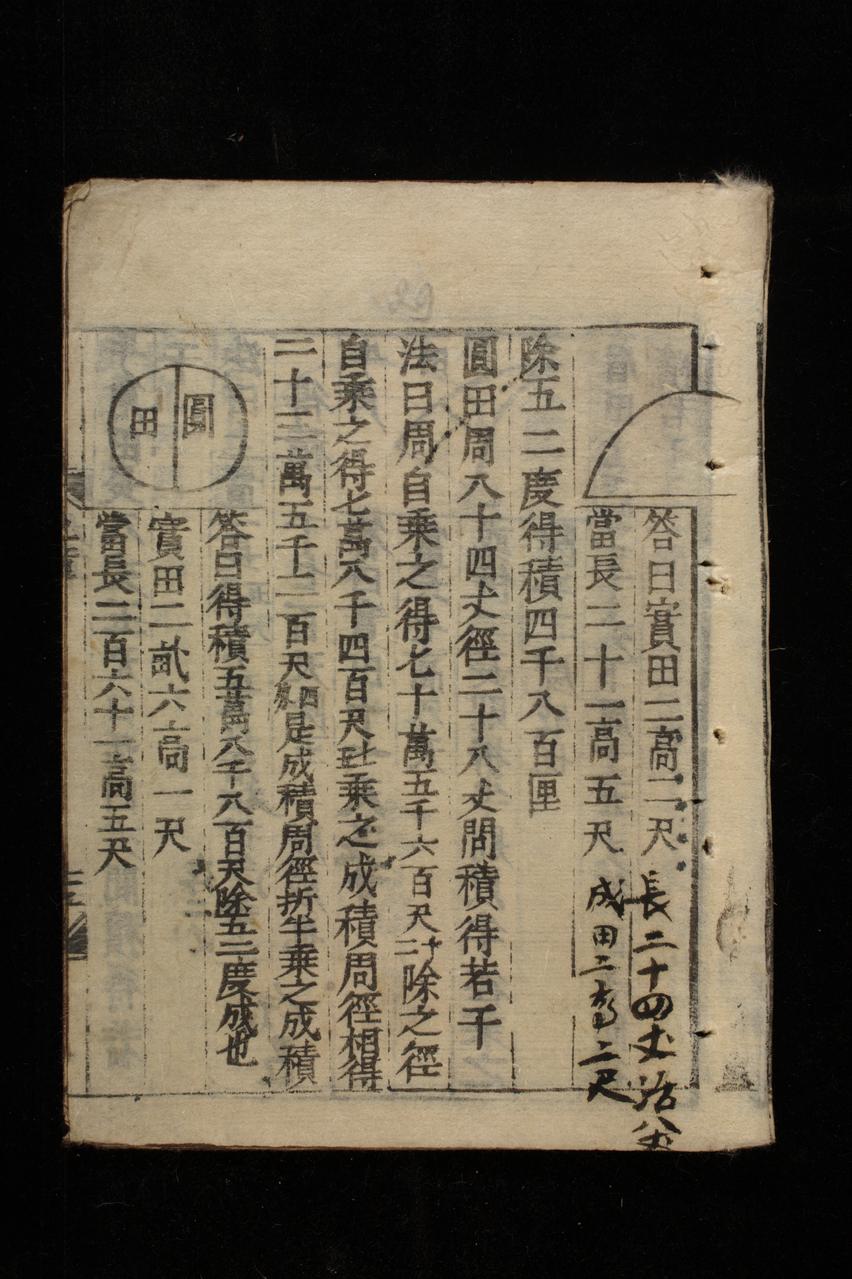 答曰實田二高二尺
長二十四丈活八丈
當長二十一高五尺
成田二高二尺
除五二度得積四千八百厘
圓田周八十四丈徑二十八丈問積得若干
法曰周自乘之得七十萬五千六百尺十二除之徑
自乘之得七萬八千四百尺七五乘之成積周徑相得
二十三萬五千二百尺四歸是成積周徑折半乘之成積
圓田
答曰得積五萬八千八百尺除五二度成也
實田二貳六高一尺
當長二百六十一高五尺